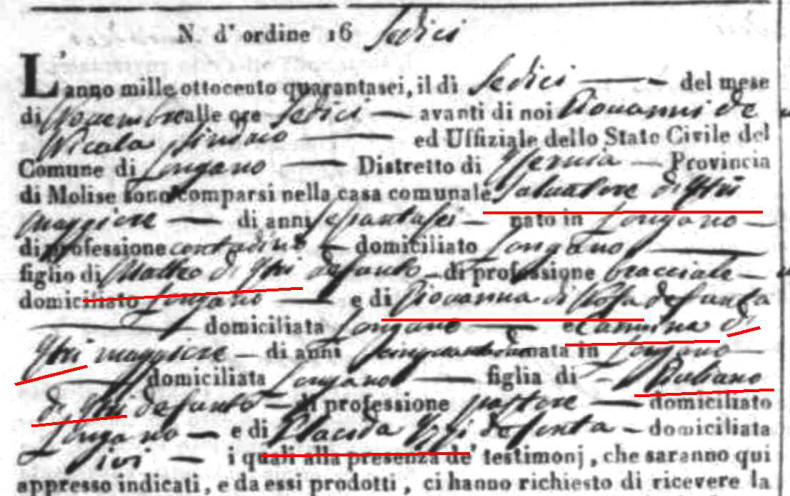 N. d'ordine 16 Sedici
L'anno mille ottocento quarantasei, il dì Sedici — del mese
di Novembre alle ore Sedici — avanti di noi Giovanni de
Nicola Sindaco — ed Uffiziale dello Stato Civile del
Comune di Longano — Distretto di Isernia — Provincia
di Molise sono comparsi nella casa comunale Salvatore di Ytri
maggiore — di anni — nato in Longano —
di professione contadino — domiciliato Longano —
figlio di Matteo di Ytri defunto — di professione bracciale —
domiciliato Longano — e di Giovanna di Rosa defunta
— domiciliata Longano — e Carmina di
Ytri maggiore — di anni nata in Longano —
— domiciliata Longano — figlia di — Giuliano
di Ytri defunto — di professione pastore — domiciliato
Longano — e di Placida defunta — domiciliata
ivi — i quali alla presenza de' testimonj, che saranno qui
appresso indicati, e da essi prodotti, ci hanno richiesto di ricevere la